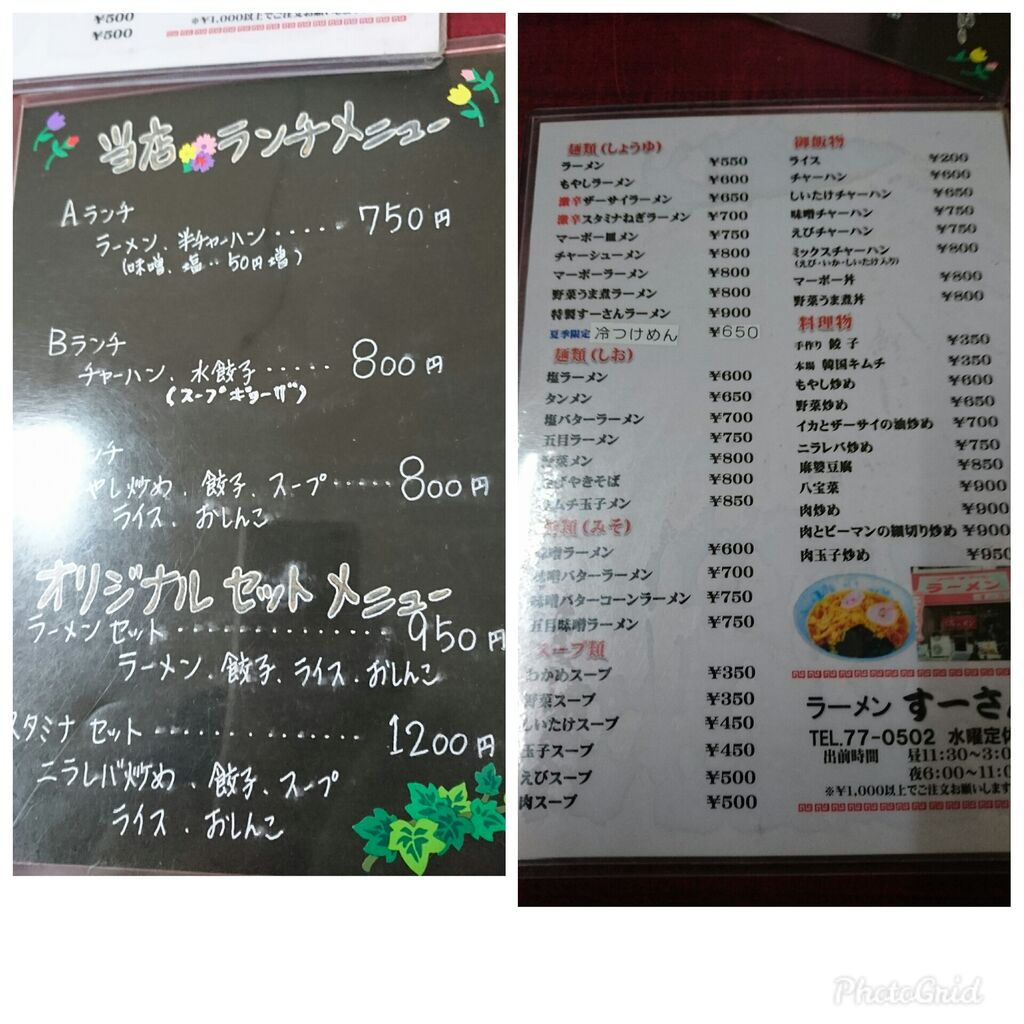 ¥500
¥500
※¥1,000以上でご注文お願い
当店ランチメニュー
Aランチ 750円
ラーメン、半チャーハン・・・・・
(味噌、塩・・50円増)
Bランチ
チャーハン、水餃子・・・・・ 800円
(スープギョーザ)
ンチ
やし炒め、餃子、スープ・・・・・800円
ライス、おしんこ
オリジナルセットメニュー
ラーメンセット・・・・・・・・・・・・・950円
ラーメン、餃子、ライス、おしんこ
スタミナセット・・・・・・・・・・・1200円
ニラレバ炒め、餃子、スープ
ライス、おしんこ
麺類(しょうゆ)
ラーメン ¥550
もやしラーメン ¥600
激辛ザーサイラーメン ¥650
激辛スタミナねぎラーメン ¥700
マーボー皿メン ¥750
チャーシューメン ¥800
マーボーラーメン ¥800
野菜うま煮ラーメン ¥800
特製すーさんラーメン ¥900
夏季限定 冷つけめん ¥650
麺類(しお)
塩ラーメン ¥600
タンメン ¥650
塩バターラーメン ¥700
五目ラーメン ¥750
菜メン ¥800
げやきそば ¥800
ムチ玉子メン ¥850
類(みそ)
味噌ラーメン ¥600
味噌バターラーメン ¥700
味噌バターコーンラーメン ¥750
五目味噌ラーメン ¥750
スープ類
わかめスープ ¥350
野菜スープ ¥350
しいたけスープ ¥450
玉子スープ ¥450
えびスープ ¥500
肉スープ ¥500
御飯物
ライス ¥200
チャーハン ¥600
しいたけチャーハン ¥650
味噌チャーハン ¥750
えびチャーハン ¥750
ミックスチャーハン ¥800
(えび・いか・しいたけ入り)
マーボー丼 ¥800
野菜うま煮丼 ¥800
料理物
手作り 餃子 ¥350
本場 韓国キムチ ¥350
もやし炒め ¥600
野菜炒め ¥650
イカとザーサイの油炒め ¥700
ニラレバ炒め ¥750
麻婆豆腐 ¥850
八宝菜 ¥900
肉炒め ¥900
肉とピーマンの細切り炒め ¥900
肉玉子炒め ¥950
ラーメン
ラーメン すーさん
TEL.77-0502 水曜定休
出前時間 昼11:30~3:0
夜6:00~11:0
※¥1,000以上でご注文お願いします
PhotoGrid